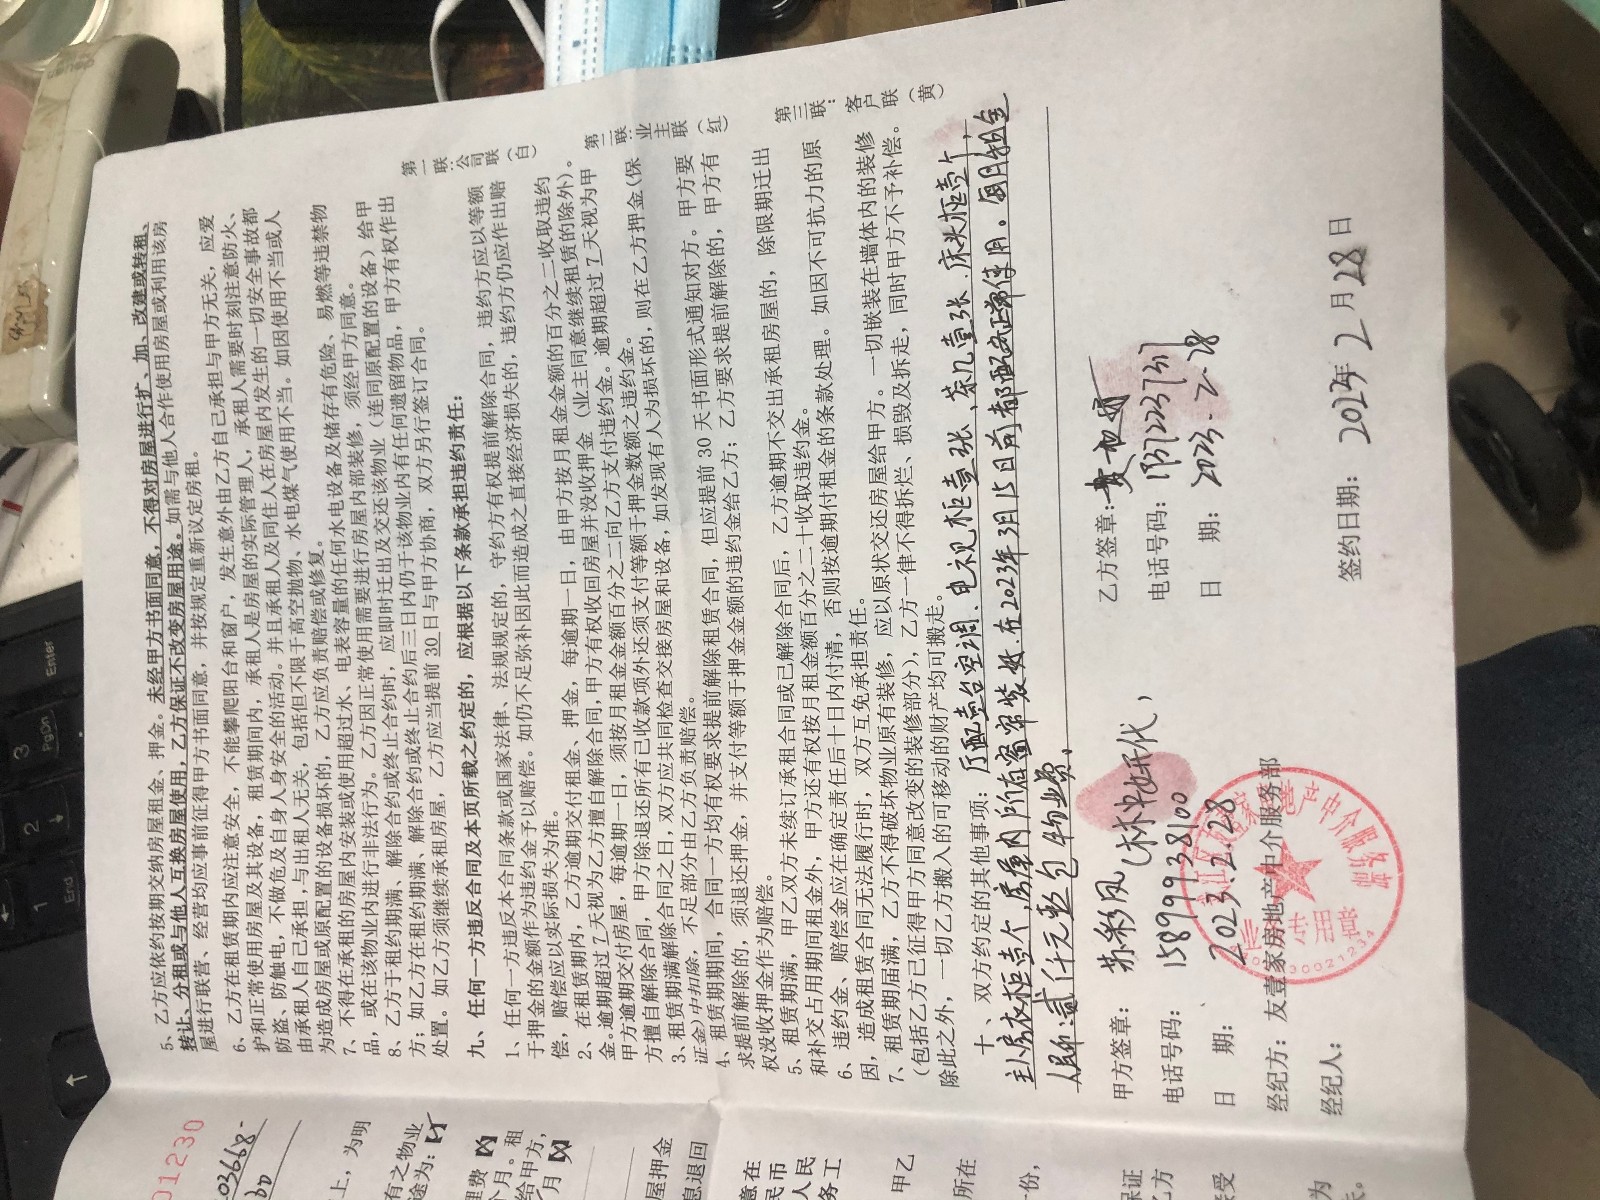 5、乙方应依约按期交纳房屋租金、押金。未经甲方书面同意，不得对房屋进行扩、加、改建或转租、
转让、分租或与他人互换房屋使用，乙方保证不改变房屋用途。如需与他人合作使用房屋或利用该房
屋进行联营、经营均应事前征得甲方书面同意，并按规定重新议定房租。
6、乙方在租赁期内应注意安全，不能攀爬阳台和窗户，发生意外由乙方自己承担与甲方无关，应爱
护和正常使用房屋及其设备，租赁期间内，承租人是房屋的实际管理人，承租人需要时刻注意防火、
防盗、防触电，不做危及自身人身安全的活动。并且承租人及同住人在房屋内发生的一切安全事故都
由承租人自己承担，与出租人无关，包括但不限于高空抛物、水电煤气使用不当。如因使用不当或人
为造成房屋或原配置的设备损坏的，乙方应负责赔偿或修复。
7、不得在承租的房屋内安装或使用超过水、电表容量的任何水电设备及储存有危险、易燃等违禁物
品，或在该物业内进行非法行为。乙方因正常使用需要进行房屋内部装修，须经甲方同意。
8、乙方于租约期满、解除合约或终止合约时，应即时迁出及交还该物业（连同原配置的设备）给甲
方；如乙方在租约期满、解除合约或终止合约后三日内仍于该物业内有任何遗留物品，甲方有权作出
处置。如乙方须继续承租房屋，乙方应当提前 30 日与甲方协商，双方另行签订合同。
九、任何一方违反合同及本页所载之约定的，应根据以下条款承担违约责任：
1、任何一方违反本合同条款或国家法律、法规规定的，守约方有权提前解除合同，违约方应以等额
于押金的金额作为违约金予以赔偿。如仍不足弥补因此而造成之直接经济损失的，违约方仍应作出赔
偿，赔偿应以实际损失为准。
2、在租赁期内，乙方逾期交付租金、押金，每逾期一日，由甲方按月租金金额的百分之二收取违约
金。逾期超过 7 天视为乙方擅自解除合同，甲方有权收回房屋并没收押金（业主同意继续租赁的除外）。
甲方逾期交付房屋，每逾期一日，须按月租金金额百分之二向乙方支付违约金。逾期超过 7 天视为甲
方擅自解除合同，甲方除退还所有已收款项外还须支付等额于押金数额之违约金。
3、租赁期满解除合同之日，双方应共同检查交接房屋和设备，如发现有人为损坏的，则在乙方押金(保
证金)中扣除，不足部分由乙方负责赔偿。
4、租赁期期间，合同一方均有权要求提前解除租赁合同，但应提前 30 天书面形式通知对方。甲方要
求提前解除的，须退还押金，并支付等额于押金金额的违约金给乙方；乙方要求提前解除的，甲方有
权没收押金作为赔偿。
5、租赁期满，甲乙双方未续订承租合同或已解除合同后，乙方逾期不交出承租房屋的，除限期迁出
和补交占用期间租金外，甲方还有权按月租金额百分之二十收取违约金。
6、违约金、赔偿金应在确定责任后十日内付清，否则按逾期付租金的条款处理。如因不可抗力的原
因，造成租赁合同无法履行时，双方互免承担责任。
7、租赁期届满，乙方不得破坏物业原有装修，应以原状交还房屋给甲方。一切嵌装在墙体内的装修
（包括乙方已征得甲方同意改变的装修部分），乙方一律不得拆烂、损毁及拆走，同时甲方不予补偿。
除此之外，一切乙方搬入的可移动的财产均可搬走。
十、双方约定的其他事项：厅配壹台空调、电视柜壹张、茶几壹张、床头柜壹个，
主人房衣柜壹个，房屋内所有窗帘装好。在2023年3月15日前都配齐正常使用。每月租金
人民币：贰仟元整包物业费。
甲方签章：苏彩凤（林妍代）
电话号码：15899938100
日 期：2023.2.28
乙方签章：
电话号码：
日 期：2023.2.28
经纪方：友壹家房地产中介服务部
经纪人：
签约日期：2023年2月28日
第一联：公司联（白）
第二联：业主联（红）
第三联：客户联（黄）
01230
上，为明
有之物业
途为：
理费
个月。租
给甲方，
屋押金
息退回
意在
民币
人民
务工
甲乙
所在
份，
保证
乙方
接受
为
Enter
PgDn
End
1
2
3